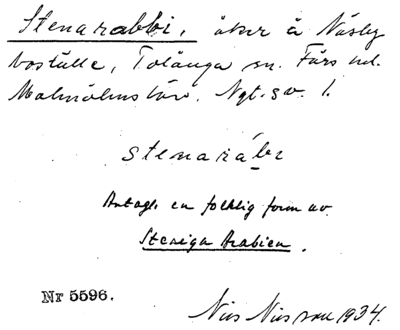 Stenarabbi, åker å Näsby
boställe, Tolånga sn. Färs hd.
Malmöhus län. Nyt. sv. 1.
stenaráбı
Antagl. en folklig form av
Steniga Arabien.
Nr 5596.
Nils Nilsson 1934.